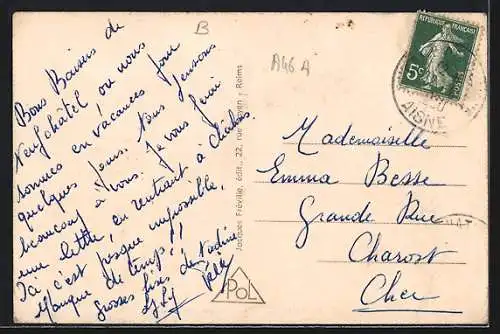 Bons Baisers de
Neufchâtel ou nous
sommes en vacances pour
quelques jours. Nous pensons
beaucoup à vous. Je vous ferai
une lettre, en rentrant à
Ici c'est presque impossible,
Manque de temps !!
Grosses bises de Nadine
B
A46 A
Jacques Fréville, édit., 22, rue - Reims
POL
REPUBLIQUE FRANÇAISE
5c
POSTES
AISNE
Mademoiselle
Emma Besse
Grande Rue
Charost
Cher